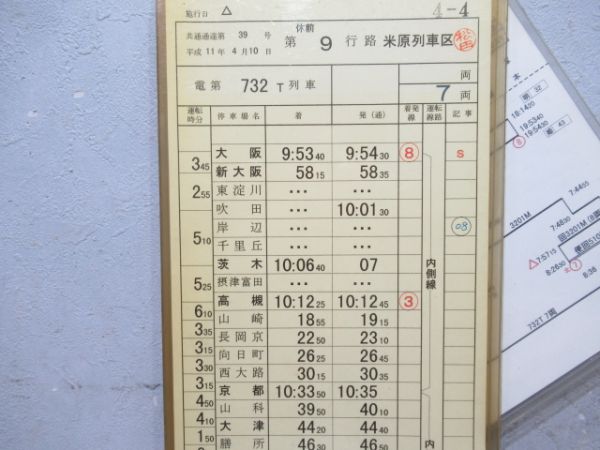 施行日 △ 4-4
共通通達第 39 号
平成 11年 4月10日
休前
第 9 行路 米原列車区
電第 732 T 列車 両
7 両
運転時分 停車場名 着 発(通) 着発線 運転線路 記事
大阪 9:53 40 9:54 30 ⑧ s
3 45 新大阪 58 15 58 35
東淀川 … …
2 55 吹田 … 10:01 30
岸辺 … … 08
5 10 千里丘 … …
茨木 10:06 40 07 内側線
摂津富田 … …
5 25 高槻 10:12 25 10:12 45 ③
6 10 山崎 18 55 19 15
3 35 長岡京 22 50 23 10
3 35 向日町 26 25 26 45
3 30 西大路 30 15 30 35
3 15 京都 10:33 50 10:35
4 50 山科 39 50 40 10
4 10 大津 44 20 44 40 内
1 50 膳所 46 30 46 50
本
明 32
18:14 20
19:53 40
⑧ 19:54 30
43
7:44 55
3201M 7:48 30
回3201M
△7:57 15
8:26 30
8:38
732T 7両